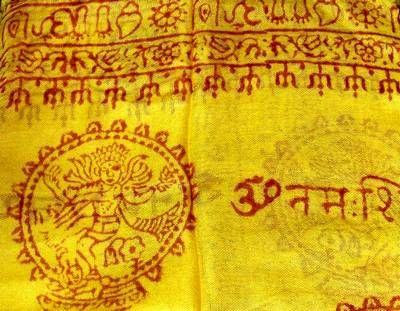 ॐ नमः शि